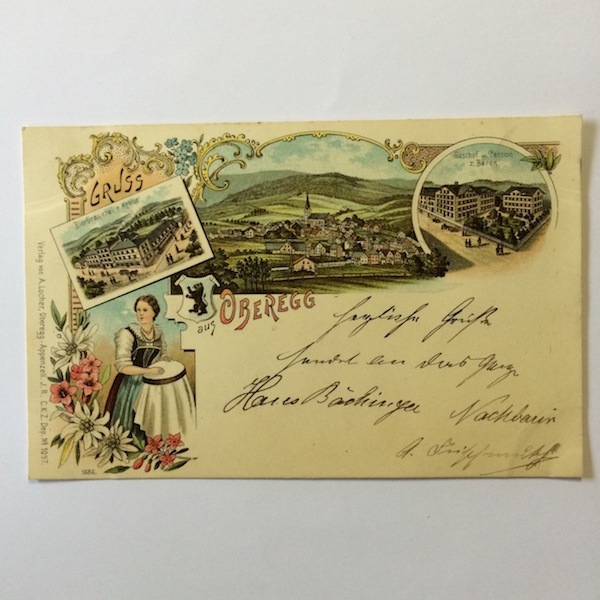 GRUSS
Bierbrauerei
Gasthof u. Pension
z. Bären
aus OBEREGG
herzliche Grüße
sendet an das Ganze
Haus Bächinger Nachbarin
A.
Verlag von A. Locher, Oberegg Appenzell J. R., C.K.Z. Dep. № 1097.